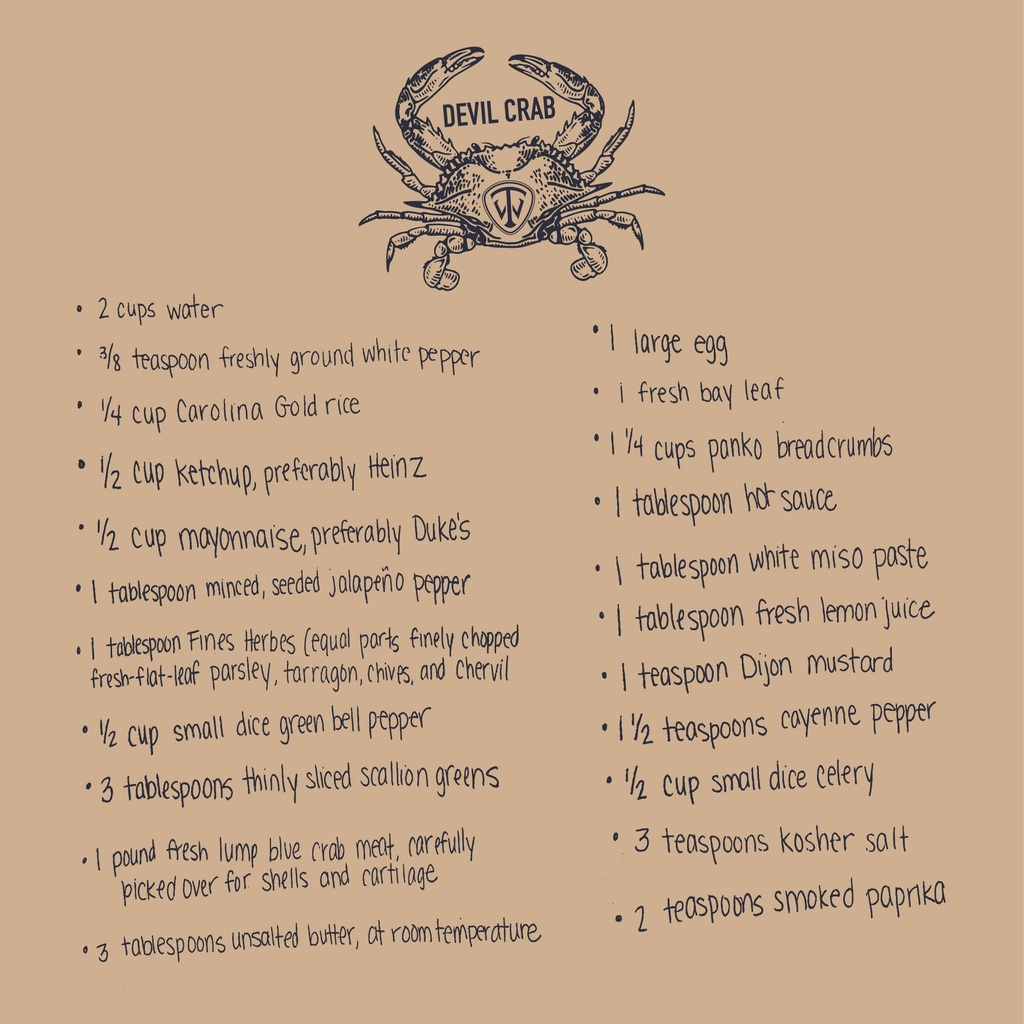 DEVIL CRAB
TW
• 2 cups water
• 3/8 teaspoon freshly ground white pepper
• 1/4 cup Carolina Gold rice
• 1/2 cup ketchup, preferably Heinz
• 1/2 cup mayonnaise, preferably Duke's
• 1 tablespoon minced, seeded jalapeño pepper
• 1 tablespoon Fines Herbes (equal parts finely chopped
fresh-flat-leaf parsley, tarragon, chives, and chervil
• 1/2 cup small dice green bell pepper
• 3 tablespoons thinly sliced scallion greens
• 1 pound fresh lump blue crab meat, carefully
picked over for shells and cartilage
• 3 tablespoons unsalted butter, at room temperature
• 1 large egg
• 1 fresh bay leaf
• 1 1/4 cups panko breadcrumbs
• 1 tablespoon hot sauce
• 1 tablespoon white miso paste
• 1 tablespoon fresh lemon juice
• 1 teaspoon Dijon mustard
• 1 1/2 teaspoons cayenne pepper
• 1/2 cup small dice celery
• 3 teaspoons kosher salt
• 2 teaspoons smoked paprika